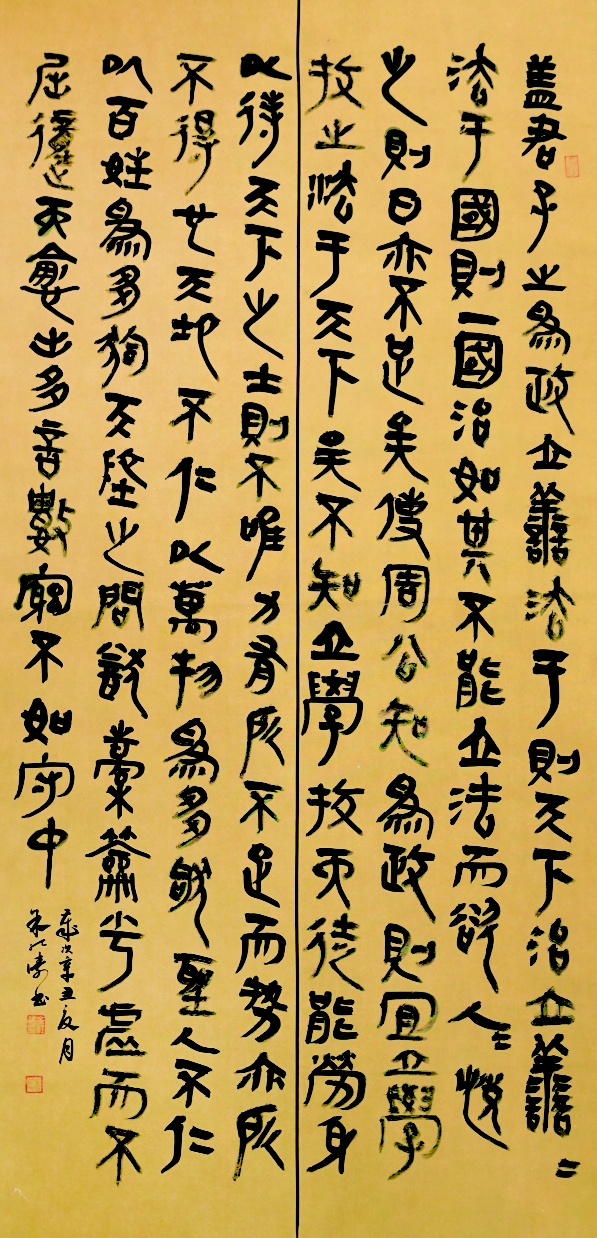 蓋君子之為政立善法于則天下治立善
法于國則一國治如其不能立法而欲人=悅
之則日亦不足矣使周公知為政則宜立學
校之法于天下矣不知立學校而徒能勞身
以待天下之士則不唯力有所不足而勢亦所
不得也天地不仁以萬物為芻狗聖人不仁
以百姓為芻狗天地之間猷橐籥乎虛而不
屈動而愈出多言數窮不如守中
歲次辛丑夏月